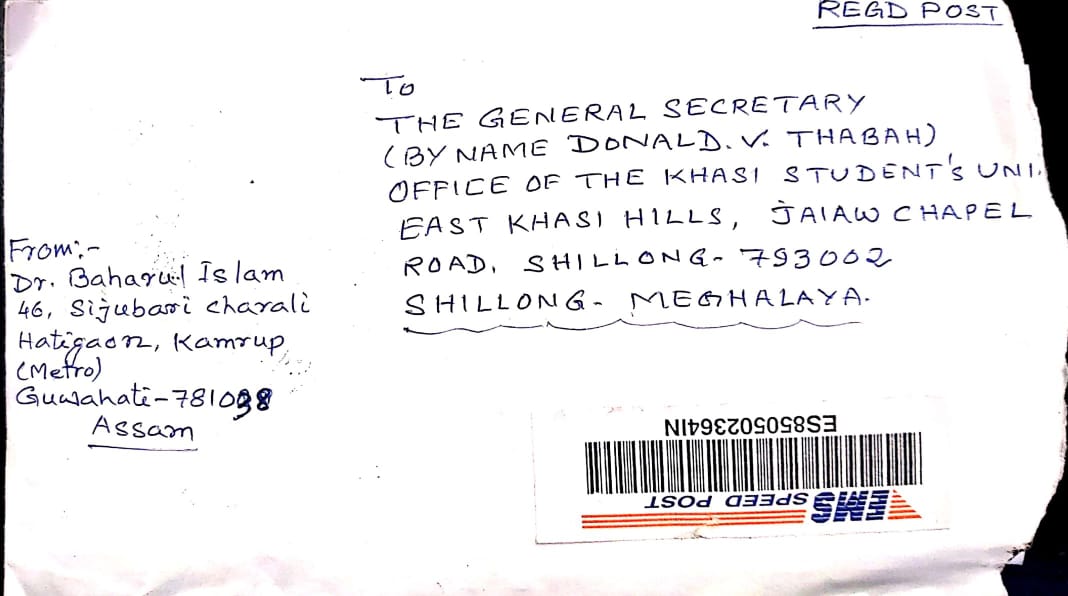 REGD POST
To
THE GENERAL SECRETARY
(BY NAME DONALD. V. THABAH)
OFFICE OF THE KHASI STUDENT'S UNI.
EAST KHASI HILLS, JAIAW CHAPEL
ROAD, SHILLONG- 793002
SHILLONG- MEGHALAYA.
From:-
Dr. Baharul Islam
46, Sijubari charali
Hatigaon, Kamrup
(Metro)
Guwahati-781038
Assam
ES850502364IN
EMS SPEED POST